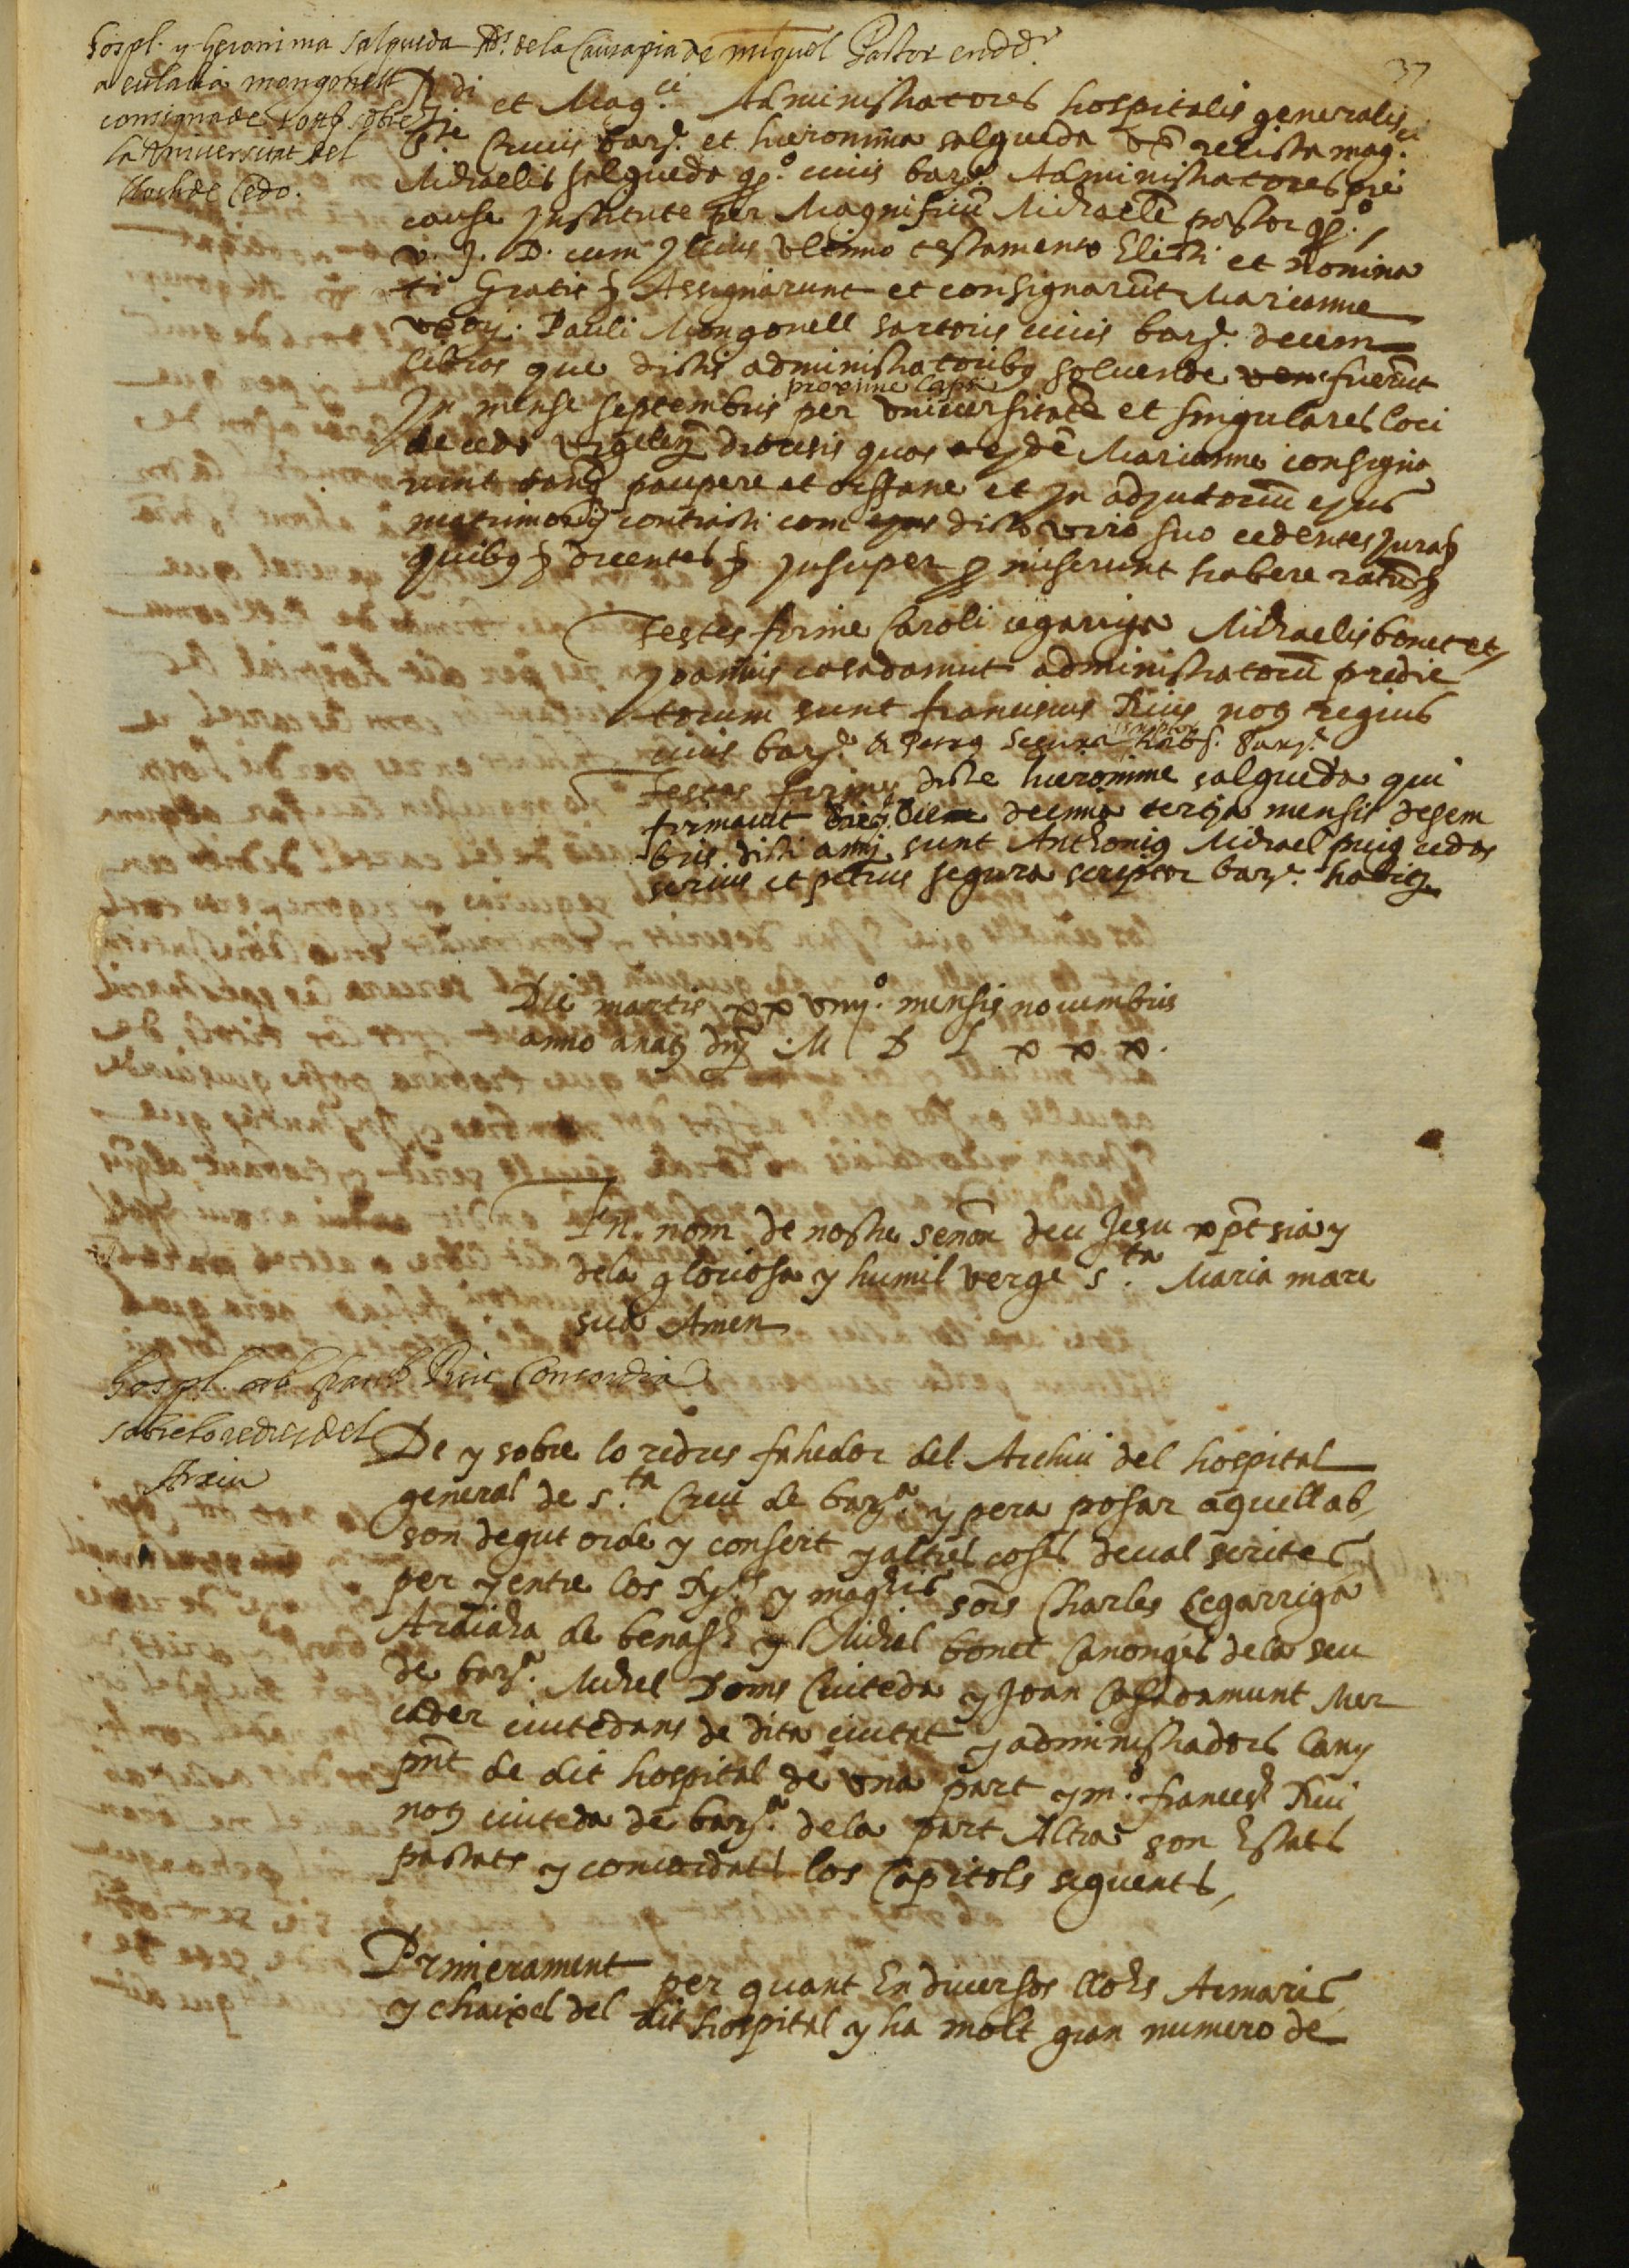 hospl. y heronima salqueda Ads. dela Causa pia de miquel Pastor en dd.r
a eulalia mongonell
consigna de sobre
la Universitat del
lloch de Cedo.
37
R.di et Mag.ci Administratores hospitalis generalis
S.te Crucis bar.e et hieronima salqueda vx.r relicta mag.ci
Michaelis salqueda q.o civis bar.e Administratores pie
cause Institute per Magnificũ Michaelẽ pastor q.o
v. J. D. cum Illius ultimo testamento Electi et nomina
ti Gratis Assignarunt et consignarũt Marianne
vxorj. Pauli Mongonell sartoris civis bar.e decem
libras que dictis administratoribꝫ solvende fuerũt
proxime lapso
In mense septembris per universitatẽ et singulares loci
de cedo Urgellen diocesis quas ejdẽ Marianne consigna
runt paupere et orffane et In adjutoriũ ejus
matrimonij contracti cum dicto viro suo cedentes Jura
quibꝫ dicentes Insuper promiserunt habere ratũ
Testes firme Caroli cegarriga Michaelis bonet et
Joannis casadamunt administratorũ predic
torum sunt franciscus Rius noꝫ regius
civis bar.e & Petrꝫ Segura scriptor habꝫ. Bar.e
Testes firme dicte hieronime salqueda qui
firmavit die decima tercia mensis desem
bris dicti anni sunt Anthoniꝫ Michael puig
et petrus segura scriptor bar.e habitꝫ
Die martis xxviiij.o mensis novembris
anno a natꝫ dnj M D L x x x.
In nom de nostre señor deu Jesu xp̃t sia y
dela gloriosa y humil verge s.ta Maria mare
sua Amen
hospl. ab franc.h Riu Concordia
sobre lo redres del
Arxiu
De y sobre lo redres fahedor del Archiu del hospital
general de s.ta Creu de bar.a y pera posar aquell ab
son degut orde y consert y altres coses deval scrites
per y entre los R.ts y mag.chs sors Charles Cegarriga
Ardiacha de benasch y Michel bonet Canonges dela seu
de bar.a Michel Doms Ciuteda y Joan Casadamunt Mer
cader ciutedans de dita ciutat y administradors lany
pñt de dit hospital de una part y m.o francesch Riu
noꝫ ciuteda de bar.a dela part Altra son Estats
pactats y concordats los Capitols seguents
Primerament per quant En diversos llochs Armaris
y chaixes del dit hospital y ha molt gran numero de